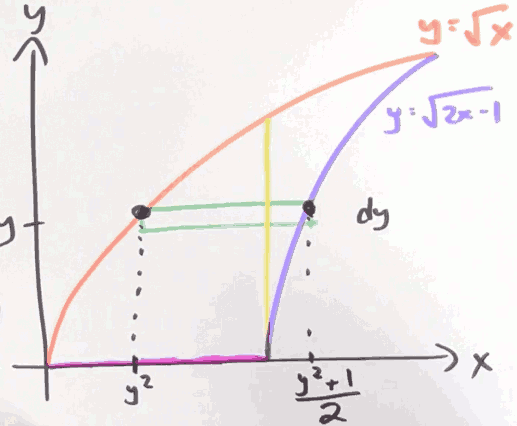 y
y=√x
y=√2x-1
y
dy
x
y²
y²+1
2